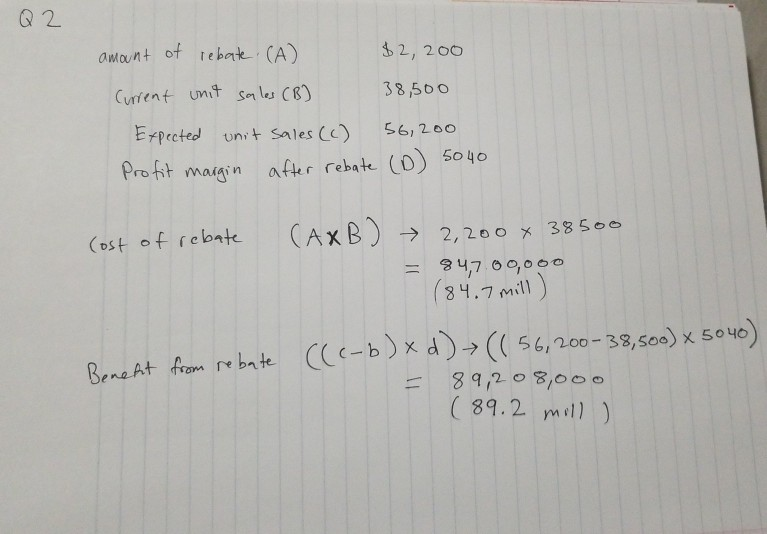 Q 2
amount of rebate (A) $2,200
Current unit sales (B) 38,500
Expected unit sales (C) 56,200
Profit margin after rebate (D) 5040
Cost of rebate (A×B) → 2,200 × 38500
= 84,700,000
(84.7 mill)
Benefit from rebate ((c-b) × d) → ((56,200-38,500) × 5040)
= 89,208,000
(89.2 mill)